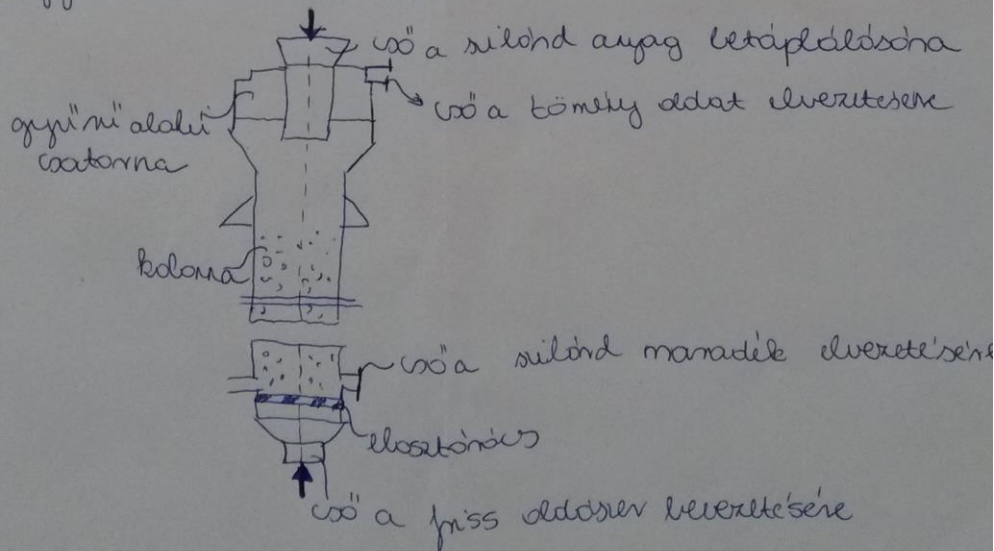 cső a szilárd anyag betáplálására
cső a tömény oldat elvezetésére
gyűrű alakú
csatorna
kolonna
cső a szilárd maradék elvezetésére
elosztórács
cső a friss oldószer bevezetésére